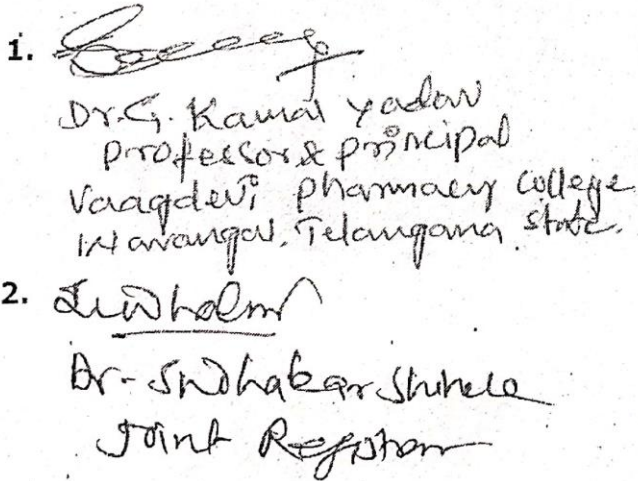 1.
Dr. G. Kamal Yadav
Professor & Principal
Vaagdevi Pharmacy College
Warangal, Telangana State.
2.
Dr-
Joint Registrar